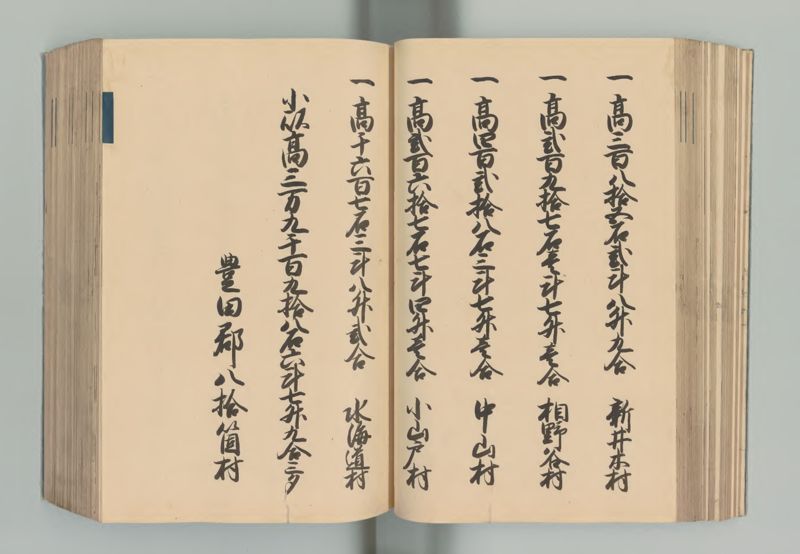 一 高三百八拾五石弐斗八升九合 新井木村
一 高弐百九拾七石壱斗七升壱合 相野谷村
一 高四百弐拾八石三斗七升壱合 中山村
一 高弐百六拾七石七斗四升壱合 小山戸村
一 高千六百七石三斗八升弐合 水海道村
小以高三万九千百九拾八石六斗七升九合三夕
豊田郡 八拾箇村